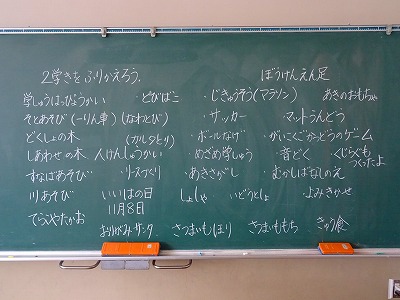 2学きをふりかえろう。　ぼうけんえん足
学しゅうはっぴょうかい　・とびばこ　・じきゅうそう(マラソン)　あきのおもちゃ
そとあそび(一りん車)(なわとび)　・サッカー　マットうんどう
どくしょの木　(カルタとり)　・ボールなげ　・がいこくごかつどうのゲーム
しあわせの木　人けんしゅうかい　・めざめ学しゅう　・音どく　・くじらぐもつくったよ
すなばあそび　・リースづくり　・あきさがし　・むかしばなしのえ
川あそび　いいはの日　しょしゃ　・いどうとしょ　・よみきかせ
11月8日
おりがみサンタ　さつまいもほり　さつまいももち　きゅう食